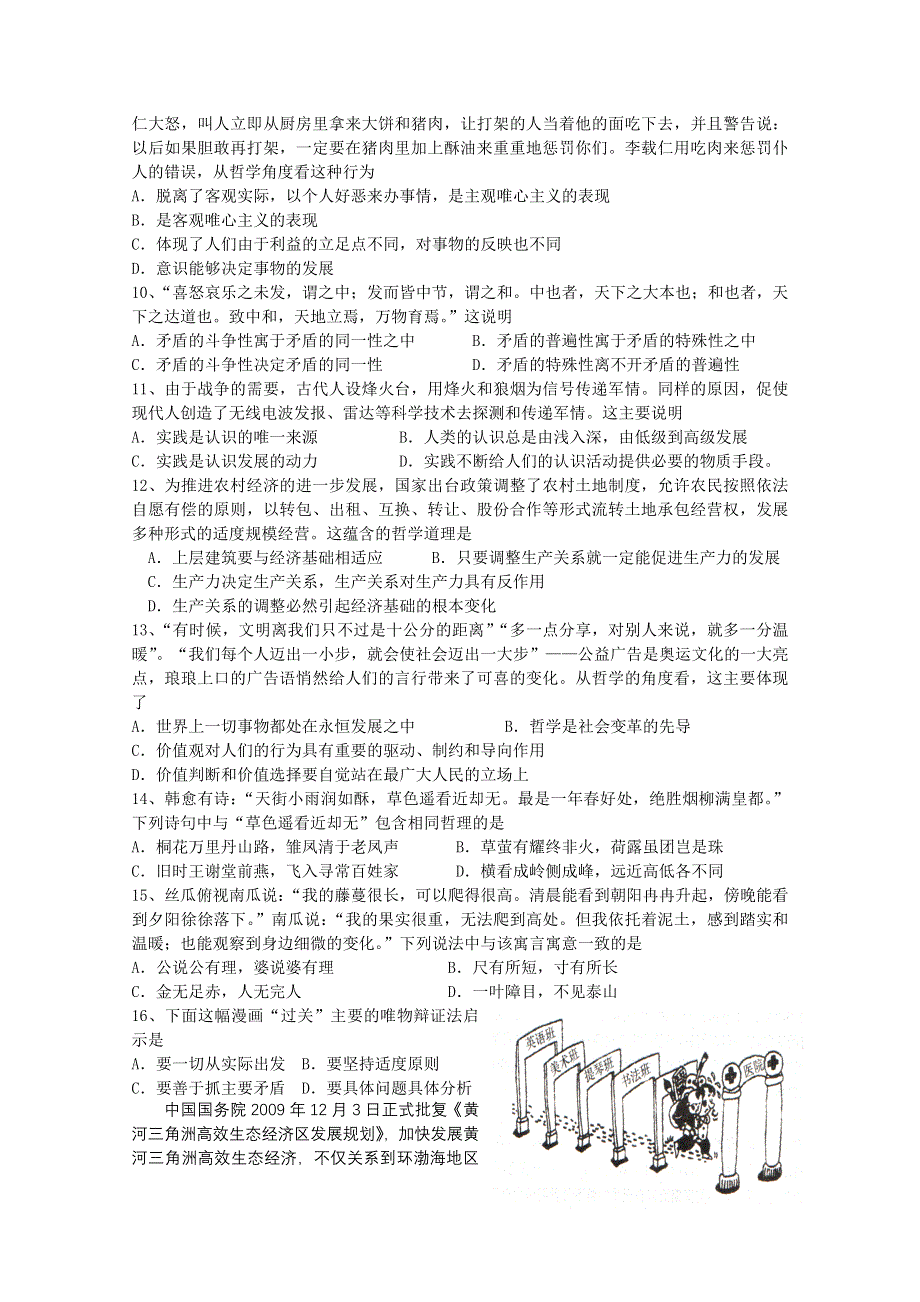 仁大怒，叫人立即从厨房里拿来大饼和猪肉，让打架的人当着他的面吃下去，并且警告说：
以后如果胆敢再打架，一定要在猪肉里加上酥油来重重地惩罚你们。李载仁用吃肉来惩罚仆
人的错误，从哲学角度看这种行为
A．脱离了客观实际，以个人好恶来办事情，是主观唯心主义的表现
B．是客观唯心主义的表现
C．体现了人们由于利益的立足点不同，对事物的反映也不同
D．意识能够决定事物的发展
10、“喜怒哀乐之未发，谓之中；发而皆中节，谓之和。中也者，天下之大本也；和也者，天
下之达道也。致中和，天地立焉，万物育焉。”这说明
A．矛盾的斗争性寓于矛盾的同一性之中 B．矛盾的普遍性寓于矛盾的特殊性之中
C．矛盾的斗争性决定矛盾的同一性 D．矛盾的特殊性离不开矛盾的普遍性
11、由于战争的需要，古代人设烽火台，用烽火和狼烟为信号传递军情。同样的原因，促使
现代人创造了无线电波发报、雷达等科学技术去探测和传递军情。这主要说明
A．实践是认识的唯一来源 B．人类的认识总是由浅入深，由低级到高级发展
C．实践是认识发展的动力 D．实践不断给人们的认识活动提供必要的物质手段。
12、为推进农村经济的进一步发展，国家出台政策调整了农村土地制度，允许农民按照依法
自愿有偿的原则，以转包、出租、互换、转让、股份合作等形式流转土地承包经营权，发展
多种形式的适度规模经营。这蕴含的哲学道理是
A．上层建筑要与经济基础相适应 B．只要调整生产关系就一定能促进生产力的发展
C．生产力决定生产关系，生产关系对生产力具有反作用
D．生产关系的调整必然引起经济基础的根本变化
13、“有时候，文明离我们只不过是十公分的距离”“多一点分享，对别人来说，就多一分温
暖”。“我们每个人迈出一小步，就会使社会迈出一大步”——公益广告是奥运文化的一大亮
点，琅琅上口的广告语悄然给人们的言行带来了可喜的变化。从哲学的角度看，这主要体现
了
A．世界上一切事物都处在永恒发展之中 B．哲学是社会变革的先导
C．价值观对人们的行为具有重要的驱动、制约和导向作用
D．价值判断和价值选择要自觉站在最广大人民的立场上
14、韩愈有诗：“天街小雨润如酥，草色遥看近却无。最是一年春好处，绝胜烟柳满皇都。”
下列诗句中与“草色遥看近却无”包含相同哲理的是
A．桐花万里丹山路，雏凤清于老凤声 B．草萤有耀终非火，荷露虽团岂是珠
C．旧时王谢堂前燕，飞入寻常百姓家 D．横看成岭侧成峰，远近高低各不同
15、丝瓜俯视南瓜说：“我的藤蔓很长，可以爬得很高。清晨能看到朝阳冉冉升起，傍晚能看
到夕阳徐徐落下。”南瓜说：“我的果实很重，无法爬到高处。但我依托着泥土，感到踏实和
温暖；也能观察到身边细微的变化。”下列说法中与该寓言寓意一致的是
A．公说公有理，婆说婆有理 B．尺有所短，寸有所长
C．金无足赤，人无完人 D．一叶障目，不见泰山
16、下面这幅漫画“过关”主要的唯物辩证法启
示是
A．要一切从实际出发 B．要坚持适度原则
C．要善于抓主要矛盾 D．要具体问题具体分析
中国国务院 2009 年 12 月 3 日正式批复《黄
河三角洲高效生态经济区发展规划》，加快发展黄
河三角洲高效生态经济，不仅关系到环渤海地区
英语班
美术班
提琴班
书法班
医院